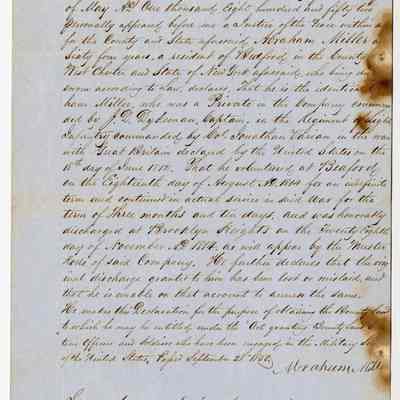 of May AD. One thousand Eight hundred and fifty two
personally appeared before me a Justice of the Peace within and
for the County and State aforesaid, Abraham Miller aged
Sixty four years, a resident of Bedford in the County of
West Chester and State of New York aforesaid, who being duly
sworn according to Law, declares, that he is the identical Abra
ham Miller, who was a Private in the Company command
ed by Captain, in the Regiment of
Infantry commanded by Col Jonathan in the war
with Great Britain declared by the United States on the
18th day of June 1812. That he volunteered at Bedford
on the Eighteenth day of August AD. 1814 for an indefinite
term and continued in actual service in said War for the
term of Three months and ten days, and was honorably
discharged at Brooklyn Heights on the Twenty Eighth
day of November AD. 1814. as will appear by the Muster
Rolls of said Company. He further declares that the ori
ginal discharge granted to him has been lost or mislaid, and
that he is unable on that account to the same.
He makes this Declaration for the purpose of obtaining the Bounty Land
to which he may be entitled under the "Act granting Bounty Land to cer
tain Officers and Soldiers who have been engaged in the Military Ser
of the United States, September 28th 1850.
Abraham Mill